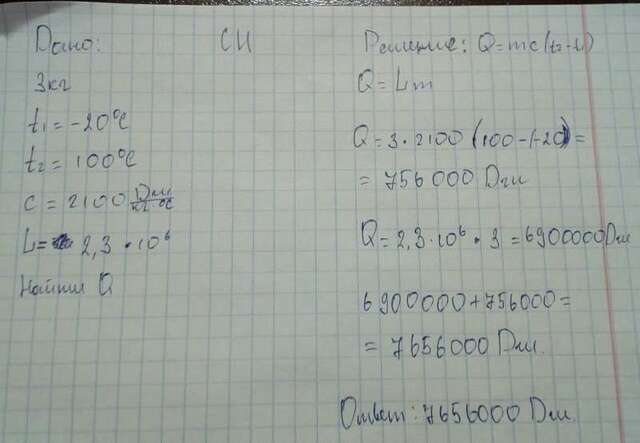 Дано:
СИ
3кг
t₁ = -20°C
t₂ = 100°C
c = 2100 Дж/кг °C
L = 2,3 · 10⁶
Найти Q
Решение: Q = mc(t₂-t₁)
Q = Lm
Q = 3 · 2100 (100-(-20)) =
= 756000 Дж
Q = 2,3 · 10⁶ · 3 = 6900000 Дж
6900000 + 756000 =
= 7656000 Дж.
Ответ: 7656000 Дж.